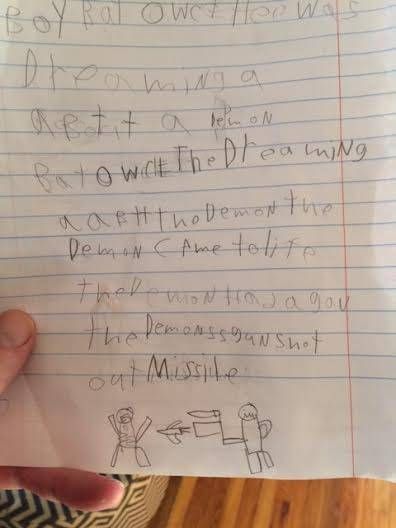 Boy Bat owct Hee was
Dreaming a
aBotit a Demon
Bat owct The Dreaming
a aBtt the Demon the
Demon came to life
the Demon Had a gou
the Demonss gun shot
out Missile